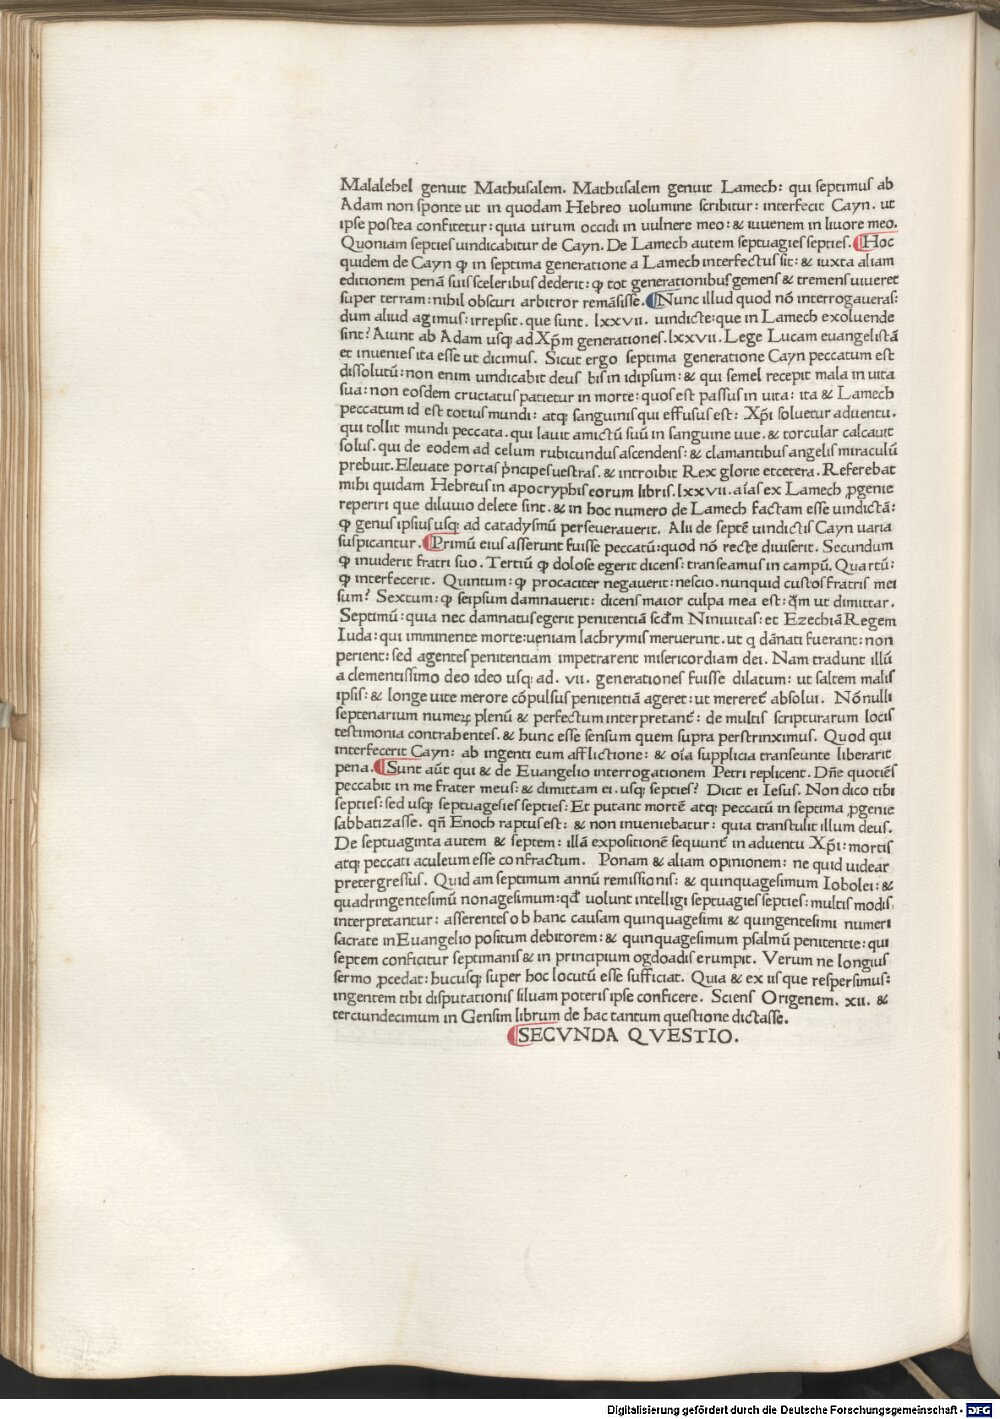 Malalehel genuit Mathusalem. Mathusalem genuit Lamech: qui septimus ab
Adam non sponte ut in quodam Hebreo uolumine scribitur: interfecit Cayn. ut
ipse postea confitetur: quia uirum occidi in uulnere meo: & iuuenem in liuore meo.
Quoniam septies uindicabitur de Cayn. De Lamech autem septuagies septies. ¶Hoc
quidem de Cayn ꝙ in septima generatione a Lamech interfectus sit: & iuxta aliam
editionem penā suis sceleribus dederit: ꝙ tot generationibus gemens & tremens uiueret
super terram: nihil obscuri arbitror remāsisse. ¶Nunc illud quod nō interrogaueras:
dum aliud agimus: irrepsit. que sunt. lxxvii. uindicte: que in Lamech exoluende
sint? Aiunt ab Adam usq; ad Xp̄m generationes. lxxvii. Lege Lucam euangelistā
et inuenies ita esse ut dicimus. Sicut ergo septima generatione Cayn peccatum est
dissolutū: non enim uindicabit deus bis in idipsum: & qui semel recepit mala in uita
sua: non eosdem cruciatus patietur in morte: quos est passus in uita: ita & Lamech
peccatum id est totius mundi: atq; sanguinis qui effusus est: Xp̄i soluetur aduentu.
qui tollit mundi peccata. qui lauit amictū suū in sanguine uue. & torcular calcauit
solus. qui de eodem ad celum rubicundus ascendens: & clamantibus angelis miraculū
prebuit. Eleuate portas p̄ncipes uestras. & introibit Rex glorie etcetera. Referebat
mihi quidam Hebreus in apocryphis eorum libris. lxxvii. aīas ex Lamech ꝓgenie
reperiri que diluuio delete sint. & in hoc numero de Lamech factam esse uindictā:
ꝙ genus ipsius usq; ad cataclysmū perseuerauerit. Alii de septē uindictis Cayn uaria
suspicantur. ¶Primū eius asserunt fuisse peccatū: quod nō recte diuiserit. Secundum
ꝙ inuiderit fratri suo. Tertiū ꝙ dolose egerit dicens: transeamus in campū. Quartū:
ꝙ interfecerit. Quintum: ꝙ procaciter negauerit: nescio. nunquid custos fratris mei
sum? Sextum: ꝙ seipsum damnauerit: dicens maior culpa mea est: q̄m ut dimittar.
Septimū: quia nec damnatus egerit penitentiā scd̄m Niniuitas: et Ezechiā Regem
Iuda: qui imminente morte: ueniam lachrymis meruerunt. ut q dānati fuerant: non
perient: sed agentes penitentiam impetrarent misericordiam dei. Nam tradunt illū
a clementissimo deo ideo usq; ad. vii. generationes fuisse dilatum: ut saltem malis
ipsis: & longe uite merore cōpulsus penitentiā ageret: ut mereret̄ absolui. Nōnulli
septenarium numeꝝ plenū & perfectum interpretant̄: de multis scripturarum locis
testimonia contrahentes. & hunc esse sensum quem supra perstrinximus. Quod qui
interfecerit Cayn: ab ingenti eum afflictione: & oīa supplicia transeunte liberarit
pena. ¶Sunt aūt qui & de Euangelio interrogationem Petri replicent. Dn̄e quotiēs
peccabit in me frater meus: & dimittam ei. usq; septies? Dicit ei Iesus. Non dico tibi
septies: sed usq; septuagesies septies: Et putant mortē atq; peccatū in septima ꝓgenie
sabbatizasse. qn̄ Enoch raptus est: & non inueniebatur: quia transtulit illum deus.
De septuaginta autem & septem: illā expositionē sequunt̄ in aduentu Xp̄i: mortis
atq; peccati aculeum esse confractum. Ponam & aliam opinionem: ne quid uidear
pretergressus. Quid am septimum annū remissionis: & quinquagesimum Iobolei: &
quadringentesimū nonagesimum: qd̄ uolunt intelligi septuagies septies: multis modis
interpretantur: asserentes ob hanc causam quinquagesimi & quingentesimi numeri
sacrate in Euangelio positum debitorem: & quinquagesimum psalmū penitentie: qui
septem conficitur septimanis & in principium ogdoadis erumpit. Verum ne longius
sermo ꝓcedat: hucusq; super hoc locutū esse sufficiat. Quia & ex iis que respersimus:
ingentem tibi disputationis siluam poteris ipse conficere. Sciens Origenem. xii. &
terciundecimum in Gensim librum de hac tantum questione dictasse.
¶SECVNDA QVESTIO.
Digitalisierung gefördert durch die Deutsche Forschungsgemeinschaft - DFG